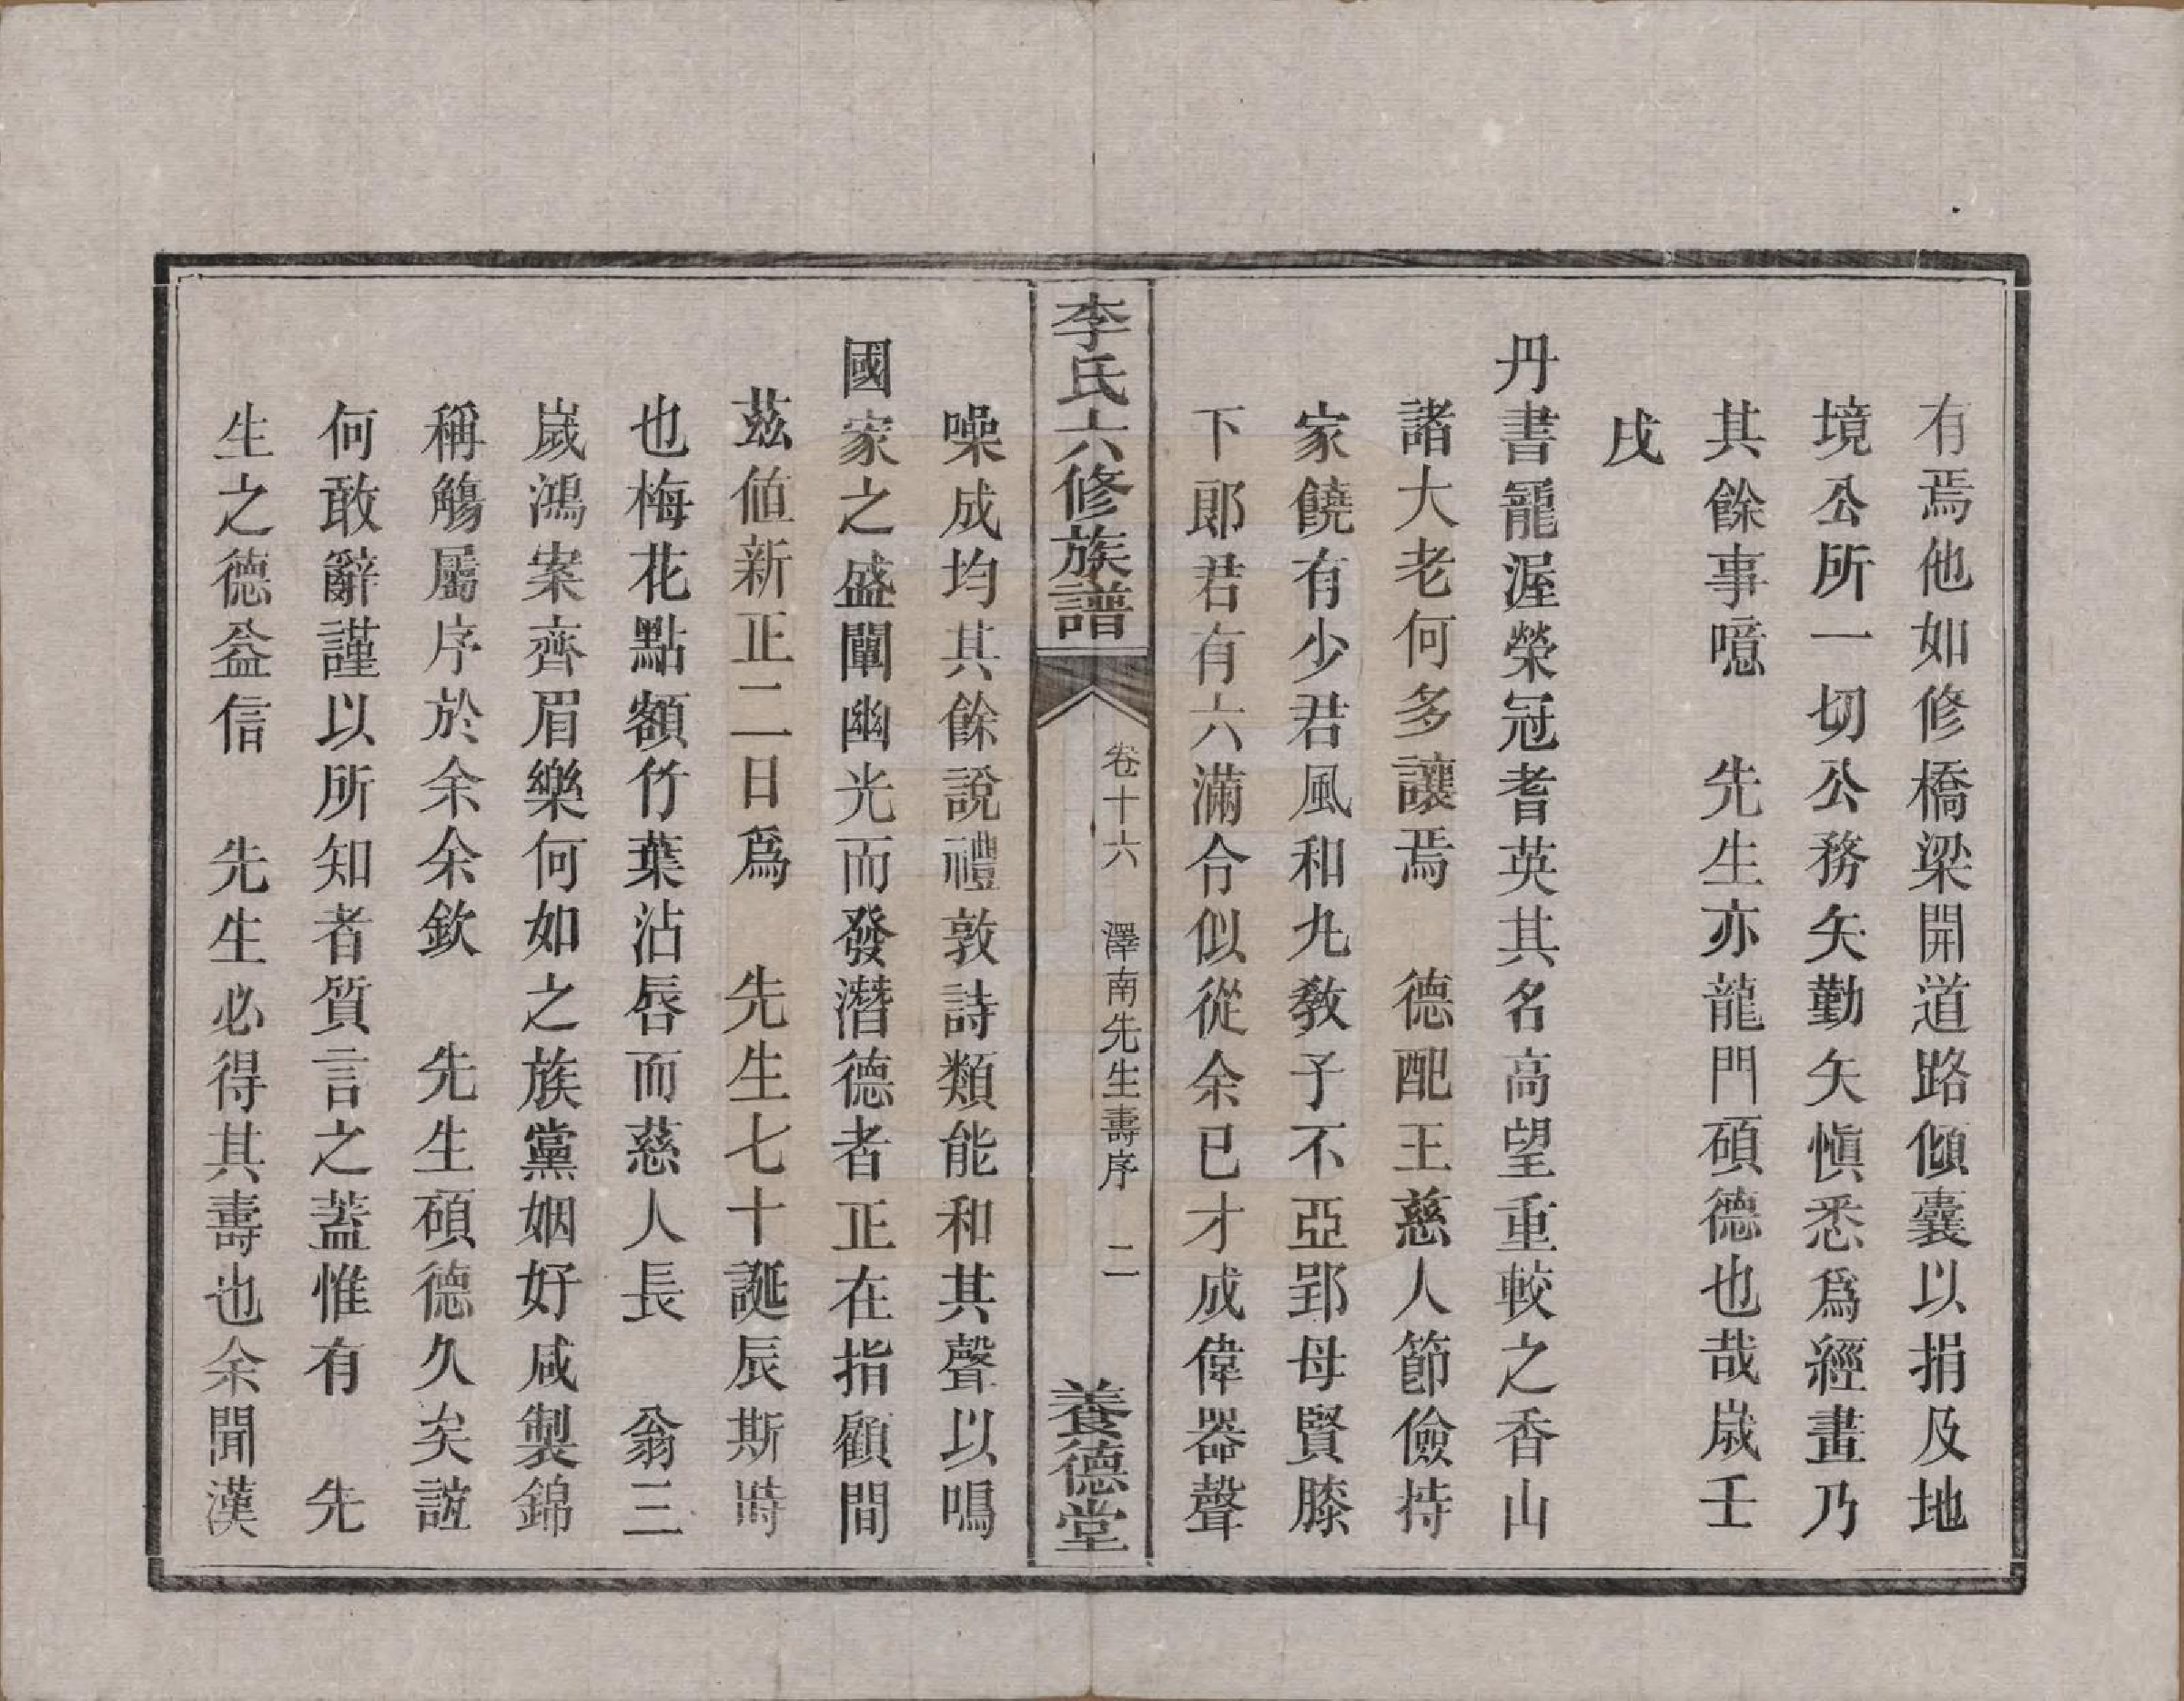 有焉他如修橋梁開道路傾囊以捐及地
境公所一切公務矢勤矢愼悉爲經畫乃
其餘事噫　先生亦龍門碩德也哉歲壬
戌
丹書寵渥榮冠耆英其名高望重較之香山
諸大老何多讓焉　德配王慈人節儉持
家饒有少君風和丸敎子不亞郢母賢膝
下郞君有六滿合似從余已才成偉器聲
李氏六修族譜
卷十六　澤南先生壽序　二
養德堂
噪成均其餘說禮敦詩類能和其聲以鳴
國家之盛闡幽光而發潛德者正在指顧間
茲值新正二日爲　先生七十誕辰斯時
也梅花點額竹葉沾唇而慈人長　翁三
歲鴻案齊眉樂何如之族黨姻好咸製錦
稱觴屬序於余余欽　先生碩德久矣誼
何敢辭謹以所知者質言之蓋惟有　先
生之德益信　先生必得其壽也余聞漢